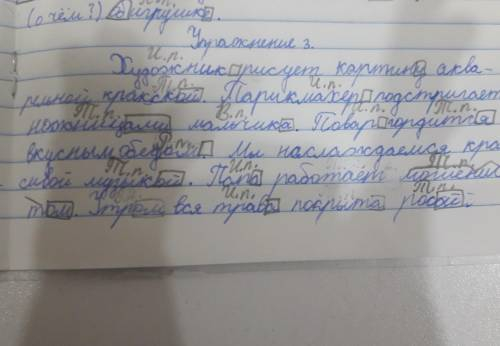 (о чём?) о игрушке.
Упражнение 3.
И.п.
Художник рисует картину аква-
Т.п. И.п.
рельной краской. Парикмахер подстригает
Т.п. В.п. И.п. Т.п.
ножницами мальчика. Повар гордится
вкусным обедом. Мы наслаждаемся кра-
Т.п. И.п. Т.п.
сивой музыкой. Папа работает
том. Утром вся трава покрыта росой.